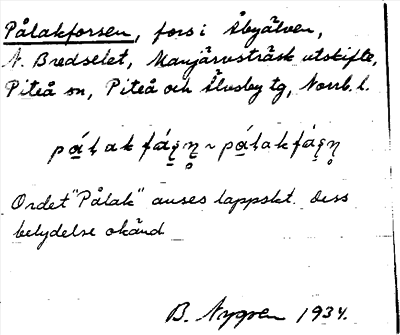 Pålakforsen, fors i Åbyälven,
N. Bredselet, Manjärvsträsk utskifte,
Piteå sn, Piteå och Älvsby tg, Norrb. l.
Ordet "Pålak" anses lappskt. Dess
betydelse okänd
B. Nygren 1934.